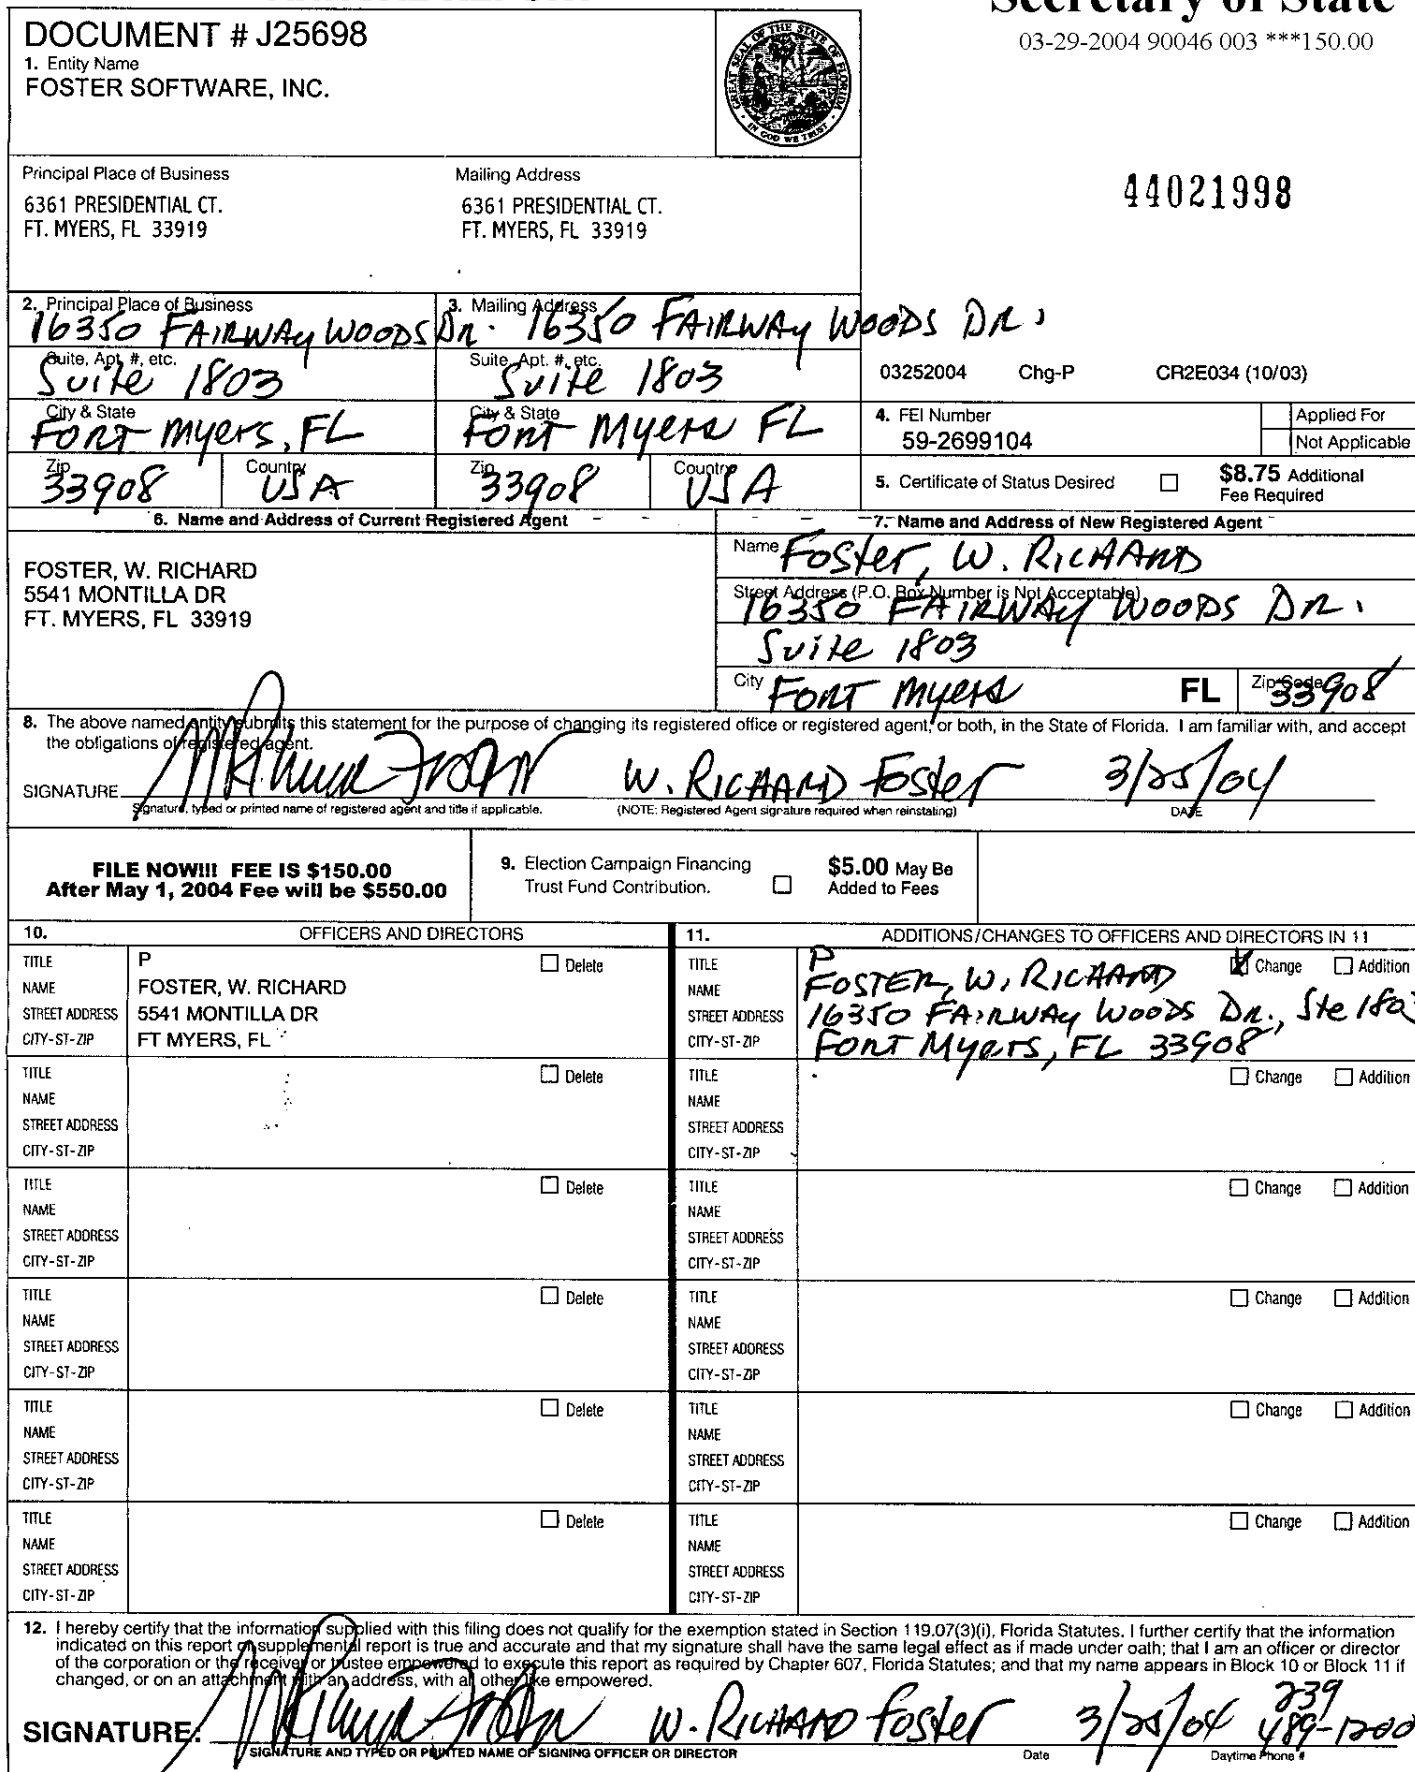 Secretary of State
03-29-2004 90046 003 ***150.00
DOCUMENT # J25698
1. Entity Name
FOSTER SOFTWARE, INC.
GREAT SEAL OF THE STATE OF FLORIDA
IN GOD WE TRUST
Principal Place of Business
6361 PRESIDENTIAL CT.
FT. MYERS, FL 33919
Mailing Address
6361 PRESIDENTIAL CT.
FT. MYERS, FL 33919
44021998
2. Principal Place of Business
16350 FAIRWAY WOODS DR.
Suite, Apt. #, etc.
Suite 1803
City & State
FORT Myers, FL
Zip
33908
Country
USA
3. Mailing Address
16350 FAIRWAY WOODS DR.
Suite, Apt. #, etc.
Suite 1803
City & State
FORT Myers FL
Zip
33908
Country
USA
03252004 Chg-P CR2E034 (10/03)
4. FEI Number
59-2699104
Applied For
Not Applicable
5. Certificate of Status Desired
$8.75 Additional
Fee Required
6. Name and Address of Current Registered Agent
FOSTER, W. RICHARD
5541 MONTILLA DR
FT. MYERS, FL 33919
7. Name and Address of New Registered Agent
Name Foster, W. RICHARD
Street Address (P.O. Box Number is Not Acceptable)
16350 FAIRWAY WOODS DR.
Suite 1803
City FORT Myers FL Zip Code 33908
8. The above named entity submits this statement for the purpose of changing its registered office or registered agent, or both, in the State of Florida. I am familiar with, and accept
the obligations of registered agent.
SIGNATURE W. RICHARD Foster 3/25/04
Signature, typed or printed name of registered agent and title if applicable. (NOTE: Registered Agent signature required when reinstating) DATE
FILE NOW!!! FEE IS $150.00
After May 1, 2004 Fee will be $550.00
9. Election Campaign Financing
Trust Fund Contribution.
$5.00 May Be
Added to Fees
10. OFFICERS AND DIRECTORS
TITLE P Delete
NAME FOSTER, W. RICHARD
STREET ADDRESS 5541 MONTILLA DR
CITY-ST-ZIP FT MYERS, FL
TITLE Delete
NAME
STREET ADDRESS
CITY-ST-ZIP
TITLE Delete
NAME
STREET ADDRESS
CITY-ST-ZIP
TITLE Delete
NAME
STREET ADDRESS
CITY-ST-ZIP
TITLE Delete
NAME
STREET ADDRESS
CITY-ST-ZIP
TITLE Delete
NAME
STREET ADDRESS
CITY-ST-ZIP
11. ADDITIONS/CHANGES TO OFFICERS AND DIRECTORS IN 11
TITLE P Change Addition
NAME FOSTER, W. RICHARD
STREET ADDRESS 16350 FAIRWAY WOODS DR., Ste 1803
CITY-ST-ZIP FORT Myers, FL 33908
TITLE Change Addition
NAME
STREET ADDRESS
CITY-ST-ZIP
TITLE Change Addition
NAME
STREET ADDRESS
CITY-ST-ZIP
TITLE Change Addition
NAME
STREET ADDRESS
CITY-ST-ZIP
TITLE Change Addition
NAME
STREET ADDRESS
CITY-ST-ZIP
TITLE Change Addition
NAME
STREET ADDRESS
CITY-ST-ZIP
12. I hereby certify that the information supplied with this filing does not qualify for the exemption stated in Section 119.07(3)(i), Florida Statutes. I further certify that the information
indicated on this report or supplemental report is true and accurate and that my signature shall have the same legal effect as if made under oath; that I am an officer or director
of the corporation or the receiver or trustee empowered to execute this report as required by Chapter 607, Florida Statutes; and that my name appears in Block 10 or Block 11 if
changed, or on an attachment with an address, with all other like empowered.
SIGNATURE: W. RICHARD Foster 3/25/04 239
489-1200
SIGNATURE AND TYPED OR PRINTED NAME OF SIGNING OFFICER OR DIRECTOR Date Daytime Phone #